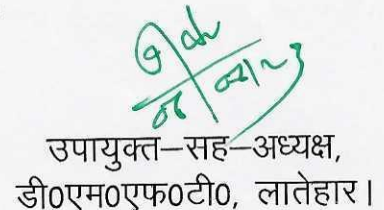 उपायुक्त–सह–अध्यक्ष,
डी०एम०एफ०टी०, लातेहार।